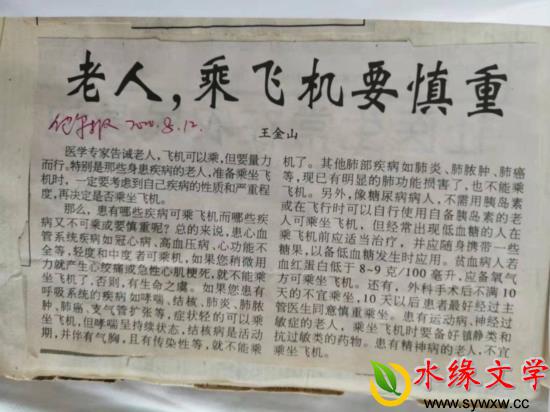 老人，乘飞机要慎重
2000.8.12.
王金山
医学专家告诫老人，飞机可以乘，但要量力
而行。特别是那些身患疾病的老人，准备乘坐飞
机时，一定要考虑到自己疾病的性质和严重程
度，再决定是否乘坐飞机。
那么，患有哪些疾病可乘飞机而哪些疾
病又不可乘或要慎重呢？总的来说，患心血
管系统疾病如冠心病、高血压病、心功能不
全等，轻度和中度者可乘机，如果您稍微用
力就产生心绞痛或急性心肌梗死，就不能乘
坐飞机了，否则，有生命之虞。如果您患有
呼吸系统的疾病如哮喘、结核、肺炎、肺脓
肿、肺癌、支气管扩张等，症状轻的可以乘
坐飞机，但哮喘呈持续状态，结核病是活动
期，并伴有气胸，且有传染性等，就不能乘
机了。其他肺部疾病如肺炎、肺脓肿、肺癌
等，现已有明显的肺功能损害了，也不能乘
飞机。另外，像糖尿病病人，不需用胰岛素
或在飞行时可以自行使用自备胰岛素的老
人可乘坐飞机，但经常出现低血糖的人在
乘飞机前应适当治疗，并应随身携带一些
糖果，以备低血糖发生时应用。贫血病人若
血红蛋白低于8~9克/100毫升，应备氧气
方可乘坐飞机。还有，外科手术后不满10
天的不宜乘坐，10天以后患者最好经过主
管医生同意慎重乘坐。患有运动病、神经过
敏症的老人，乘坐飞机时要备好镇静类和
抗过敏类的药物。患有精神病的老人，不宜
乘坐飞机。
水缘文学
www.sywxw.cc